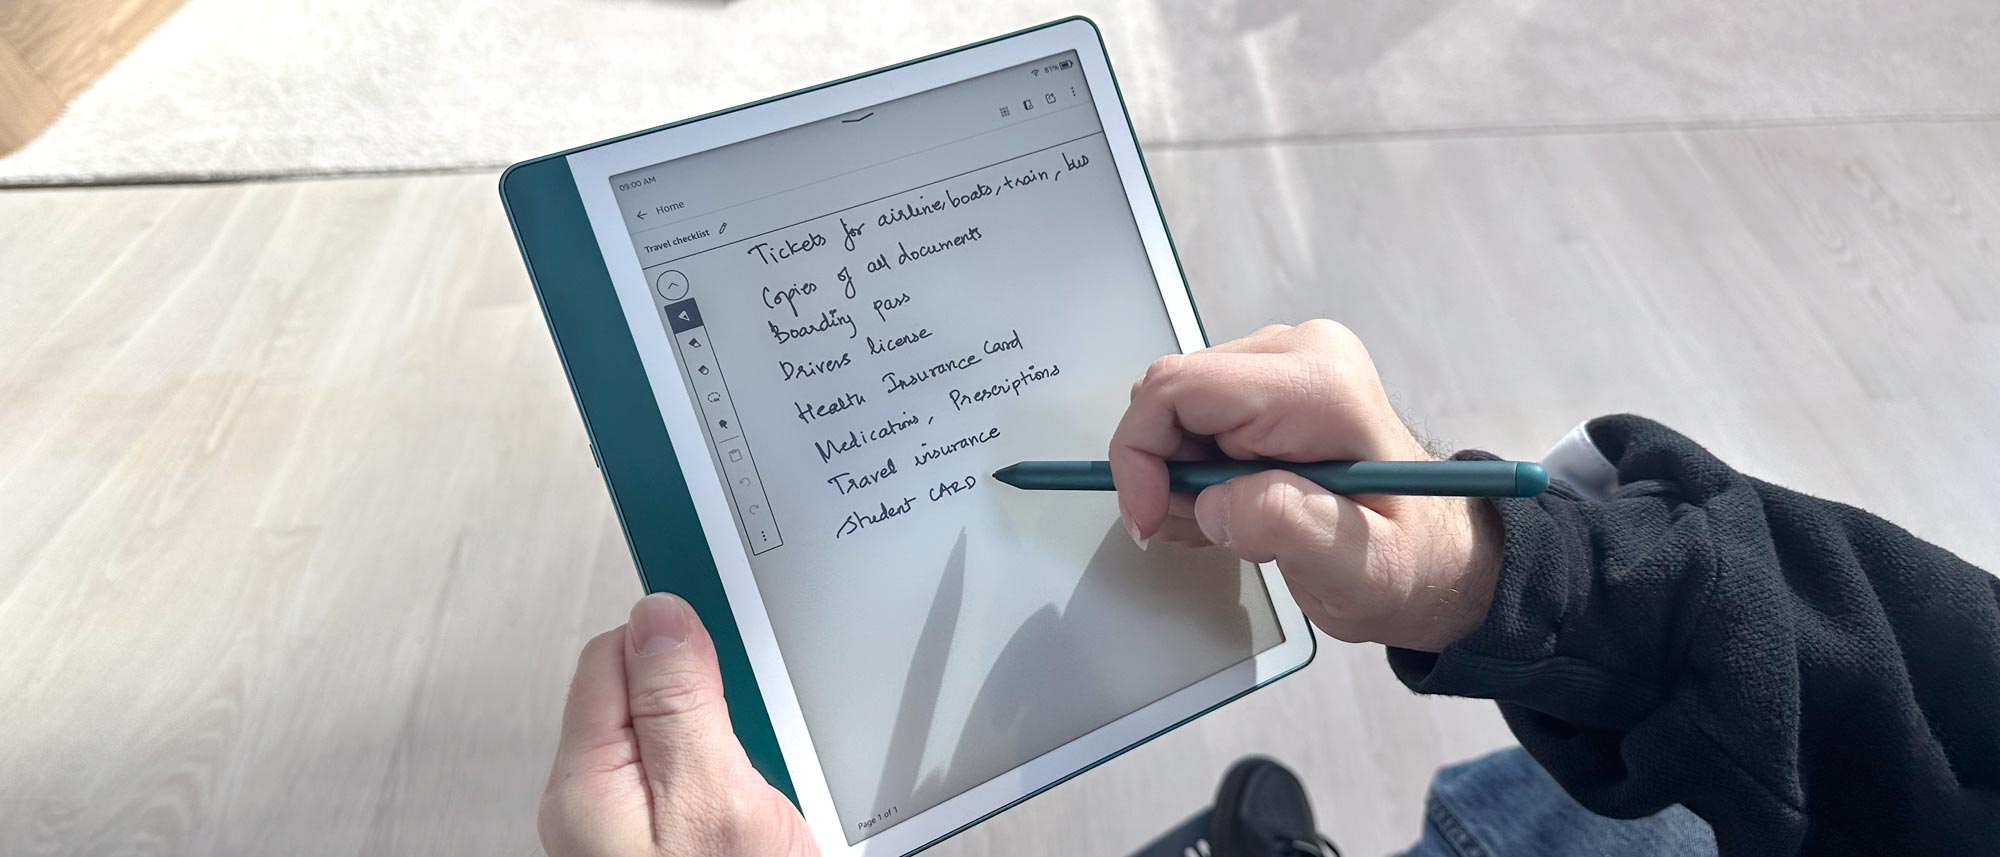 09:00 AM
81%
Home
Travel checklist
Tickets for airline, boats, train, bus
Copies of all documents
Boarding pass
Drivers license
Health Insurance Card
Medications, Prescriptions
Travel insurance
Student CARD
Page 1 of 1